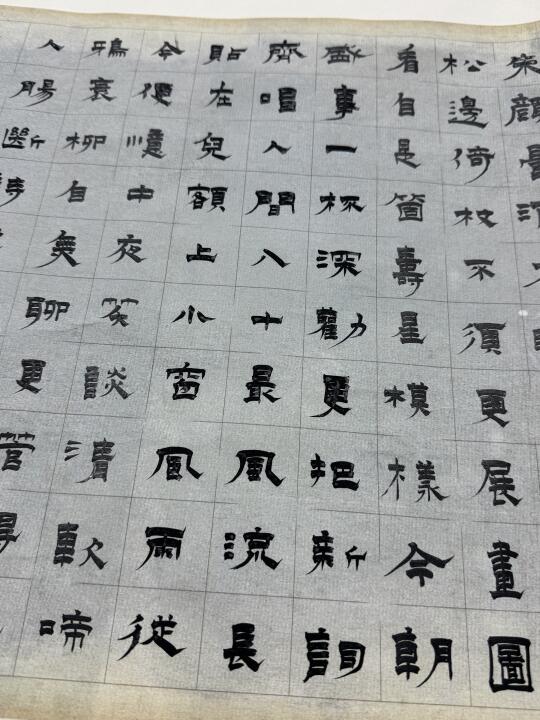 朱顏
松邊倚杖不須更展畫圖
看自是箇壽星模樣今朝
盛事一杯深勸更把新詞
齊唱人間八十最風涼長
貼在兒額上小窗風雨從
今便憶中夜笑談清軟啼
鴉衰柳自無聊更管得
人腸斷